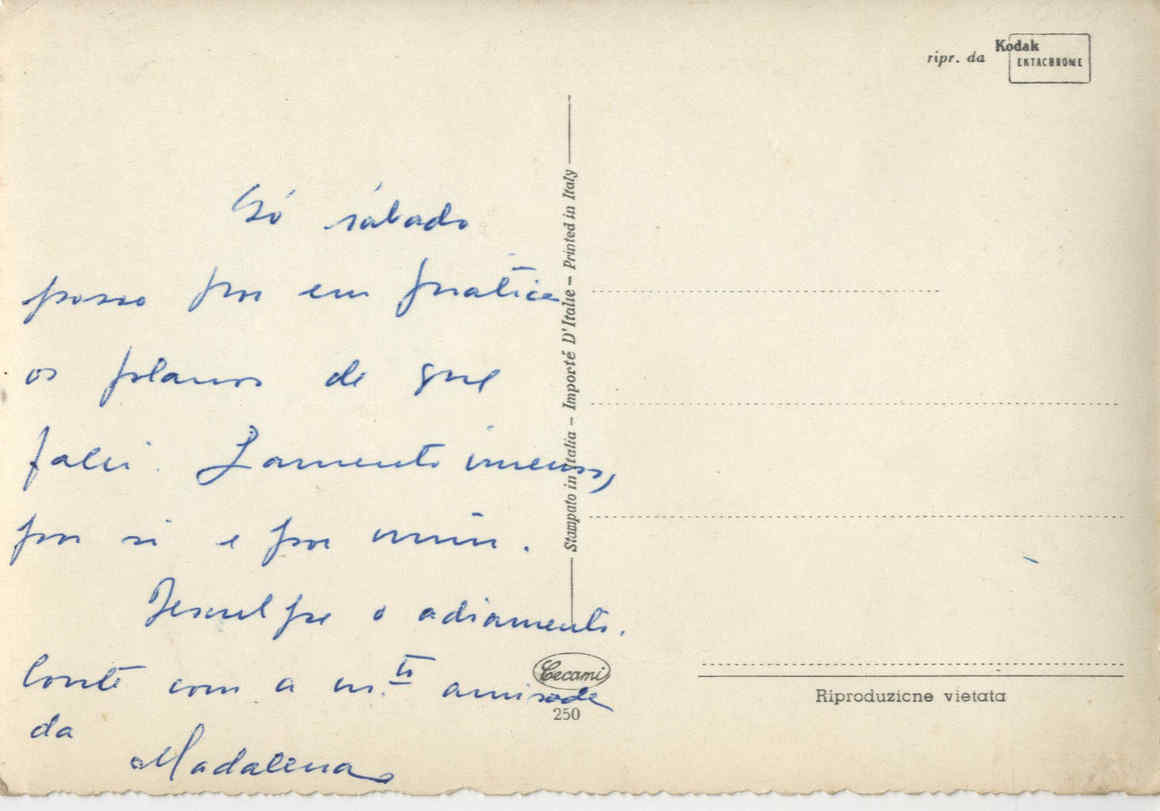 Só sábado
posso pôr em prática
os planos de que
falei. Lamento imenso,
por si e por mim.
Desculpe o adiamento.
Conte com a m.ᵗᵃ amizade
da
Madalena
ripr. da Kodak
EKTACHROME
Stampato in Italia – Importé D'Italie – Printed in Italy
Cecami
250
Riproduzione vietata